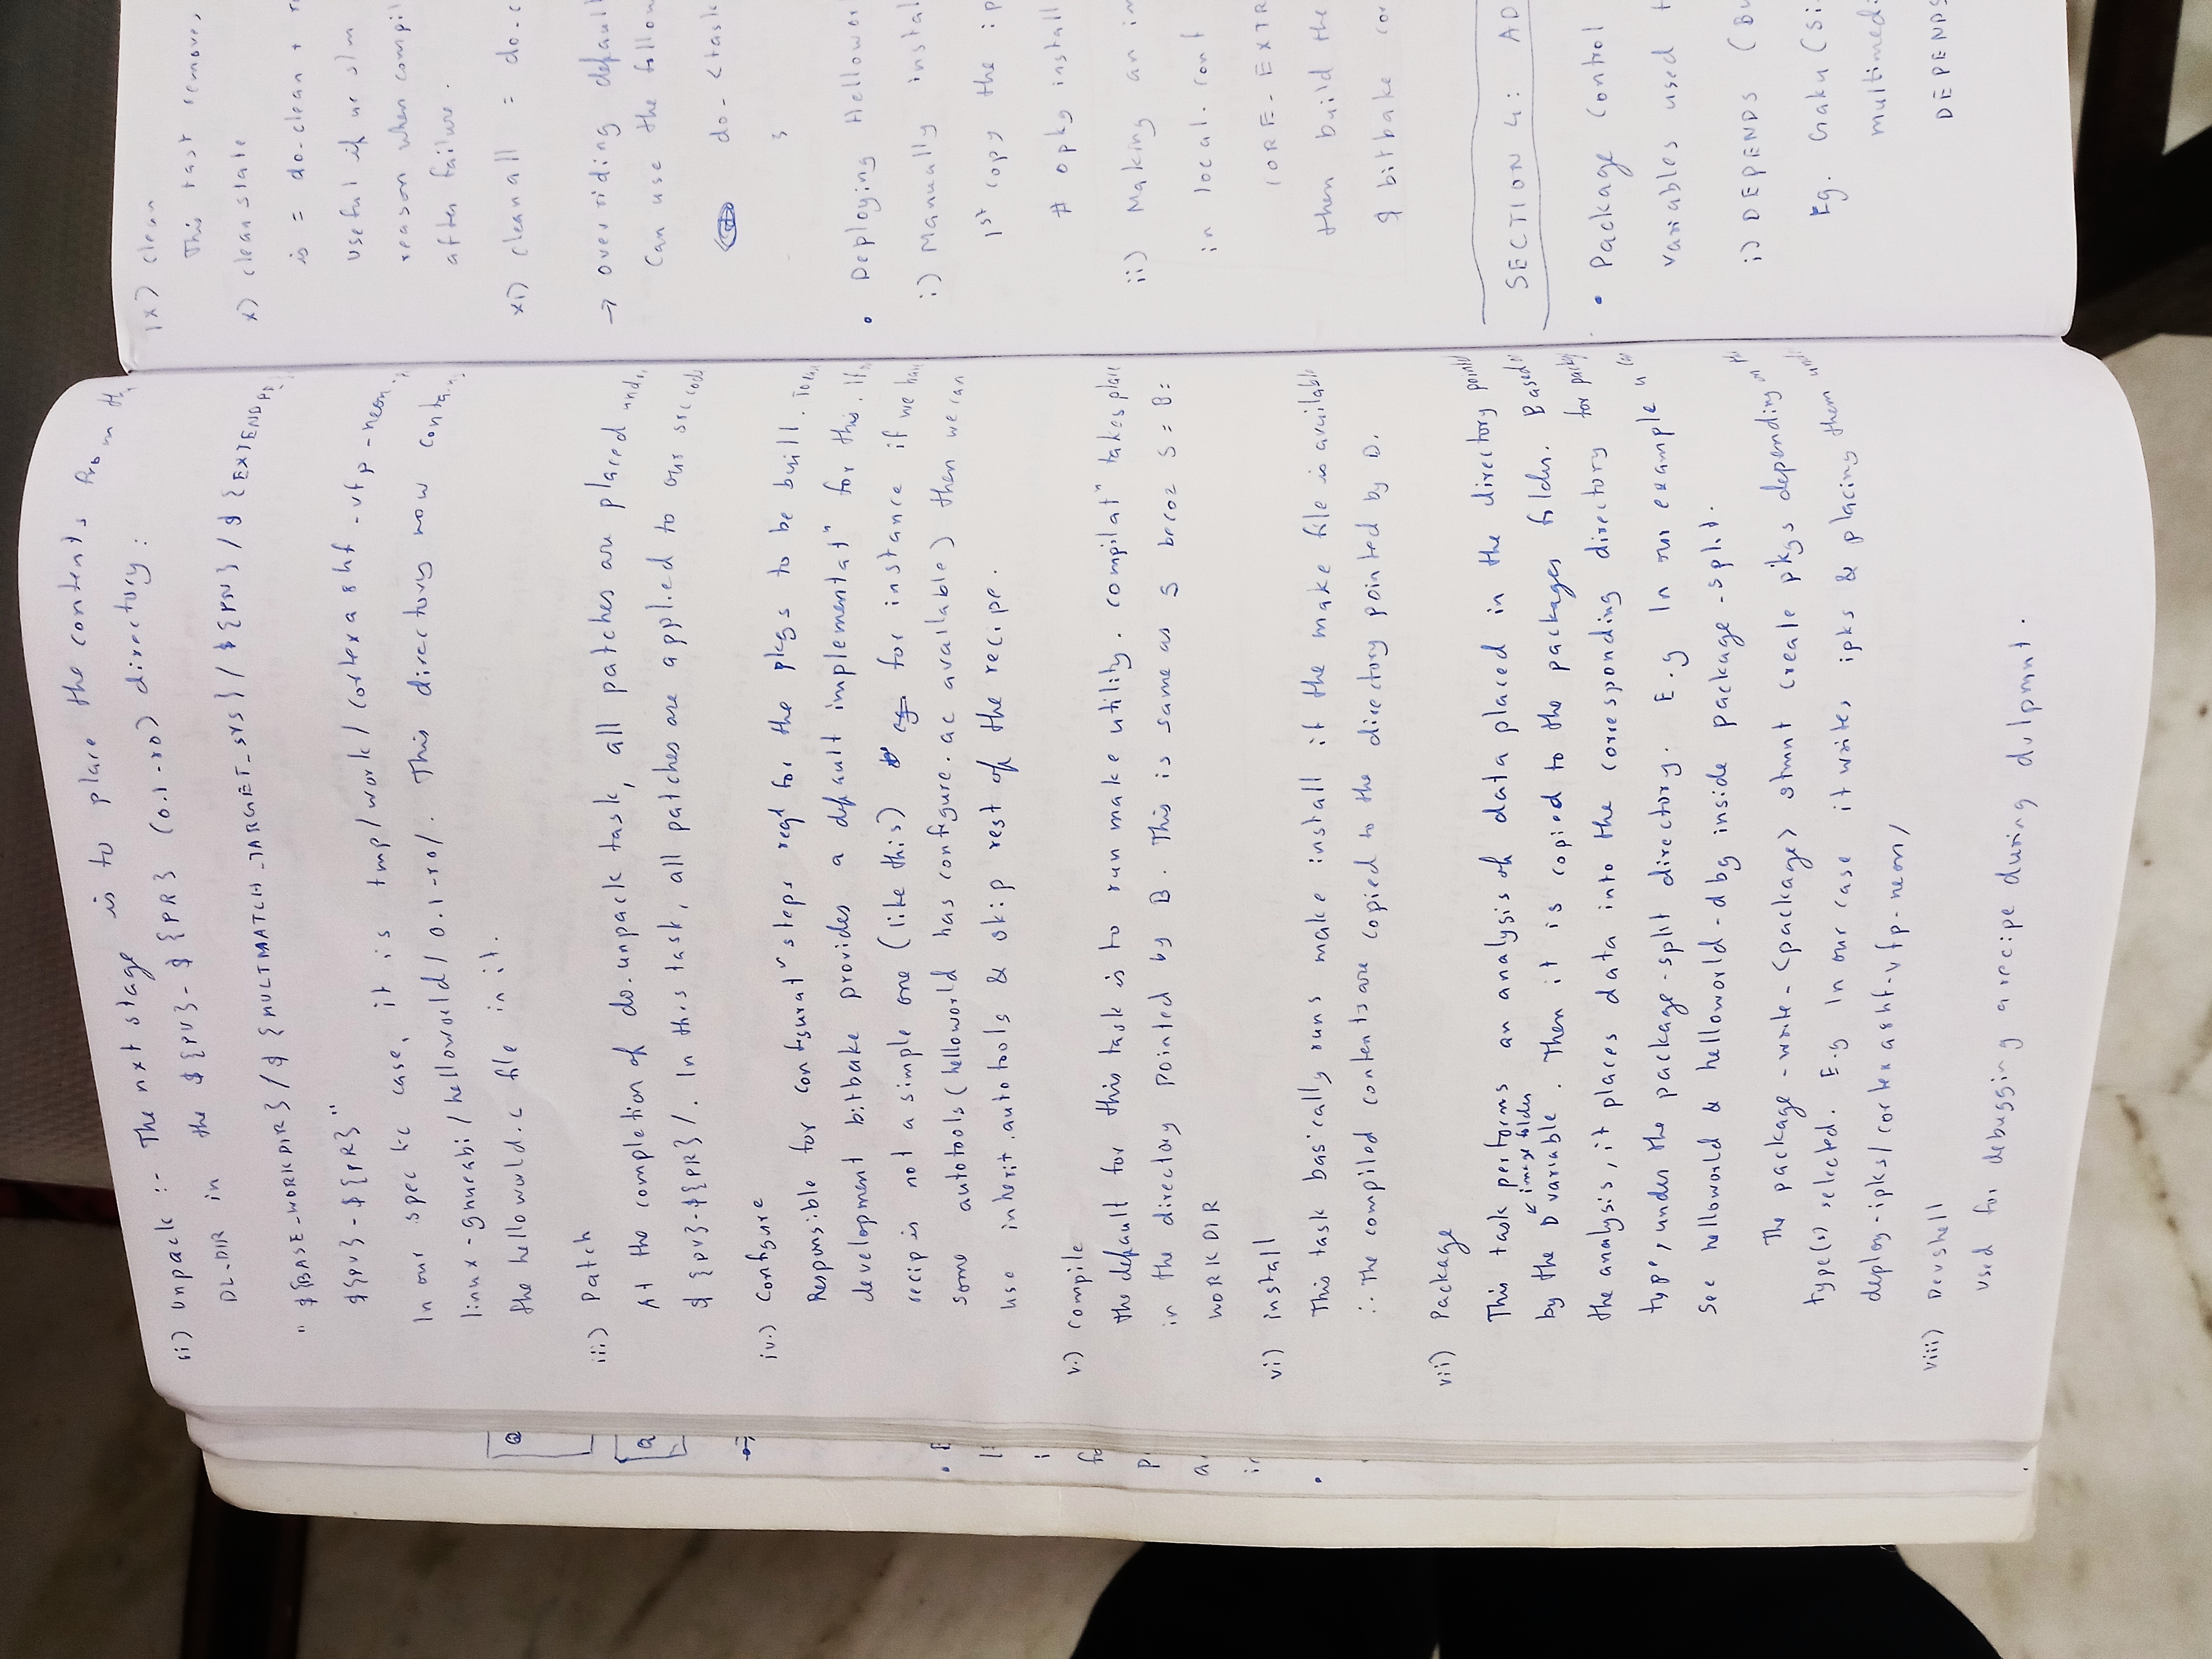 ii) Unpack :- The nxt stage is to place the contents from
DL_DIR in the ${PV}-${PR} (0.1-r0) directory:
"${BASE_WORKDIR}/${MULTIMACH_TARGET_SYS}/${PN}/${EXTENDPE}
${PV}-${PR}"
In our specific case, it is tmp/work/cortexa8hf-vfp-neon-
linux-gnueabi/helloworld/0.1-r0/. This directory now contains
the helloworld.c file in it.
iii) Patch
At the completion of do.unpack task, all patches are placed
${PV}-${PR}/. In this task, all patches are applied to our src code
iv.) Configure
Responsible for configuratn steps reqd for the pkgs to be built.
development bitbake provides a default implementatn for this. If
recip is not a simple one (like this) for instance if we have
some autotools (helloworld has configure.ac available) then we can
use inherit.autotools & skip rest of the recipe.
v.) Compile
the default for this task is to run make utility. compilatn takes place
in the directory pointed by B. This is same as S becoz S = B =
WORKDIR
vi) install
This task basically runs make install if the make file is available
:- The compiled contents are copied to the directory pointed by D.
vii) Package
This task performs an analysis of data placed in the directory pointed
image folder
by the D variable. Then it is copied to the packages folder. Based
the analysis, it places data into the corresponding directory for
type, under the package-split directory. E.g In our example
see helloworld & helloworld-dbg inside package-split.
The package-write-<package> stmnt create pkgs depending
type(s) selected. E.g In our case it writes ipks & placing them
deploy-ipks/cortexa8hf-vfp-neon/
viii) Devshell
used for debugging a recipe during dvlpmnt.
ix) Clean
This task removes
x) cleanstate
is = do-clean +
useful if we
reason when
after failure.
xi) cleanall =
→ overriding default
Can use the
do-<task
}
• Deploying
i) Manually
1st copy the
# opkg install
ii) Making an
in local.conf
CORE-
then build the
$ bitbake
SECTION 4:
• Package Control
Variables used
i) DEPENDS
Eg.
DEPENDS